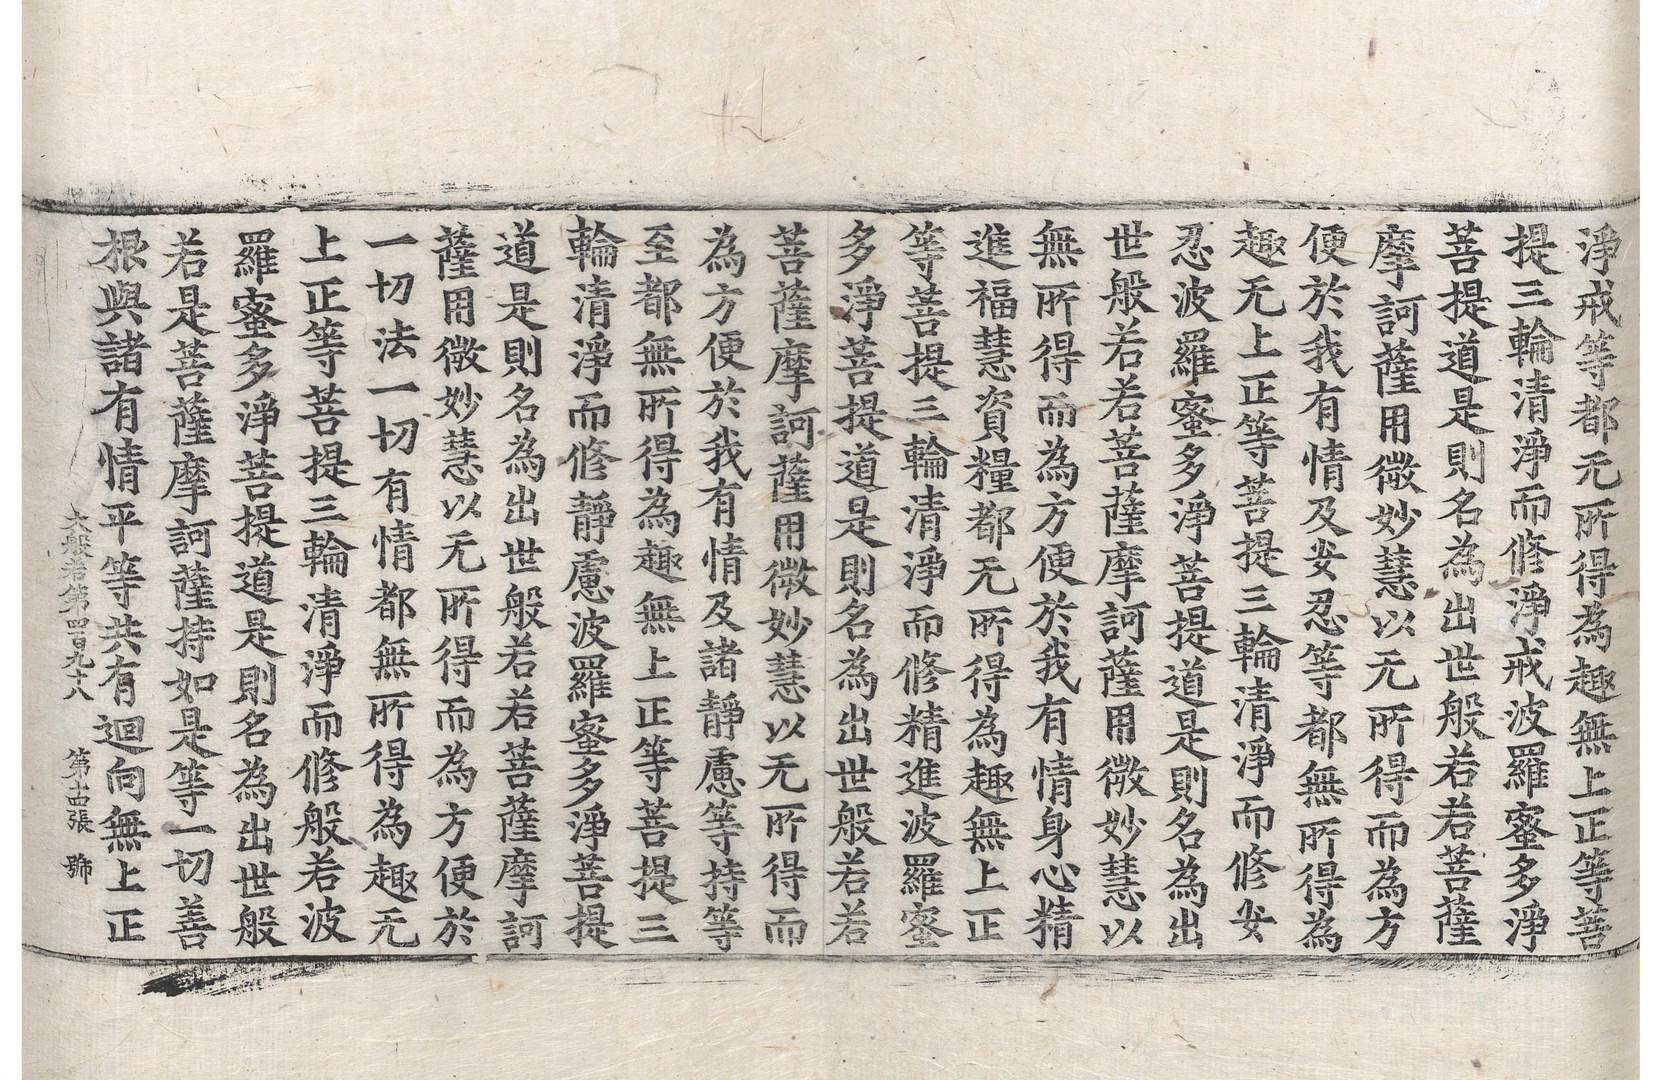 淨戒等都无所得為趣無上正等菩
提三輪清淨而修淨戒波羅蜜多淨
菩提道是則名為出世般若若菩薩
摩訶薩用微妙慧以无所得而為方
便於我有情及安忍等都無所得為
趣无上正等菩提三輪清淨而修安
忍波羅蜜多淨菩提道是則名為出
世般若若菩薩摩訶薩用微妙慧以
無所得而為方便於我有情身心精
進福慧資糧都无所得為趣無上正
等菩提三輪清淨而修精進波羅蜜
多淨菩提道是則名為出世般若若
菩薩摩訶薩用微妙慧以无所得而
為方便於我有情及諸靜慮等持等
至都無所得為趣無上正等菩提三
輪清淨而修靜慮波羅蜜多淨菩提
道是則名為出世般若若菩薩摩訶
薩用微妙慧以无所得而為方便於
一切法一切有情都無所得為趣无
上正等菩提三輪清淨而修般若波
羅蜜多淨菩提道是則名為出世般
若是菩薩摩訶薩持如是等一切善
根與諸有情平等共有迴向無上正
大般若第四百九十八 第十四張 號